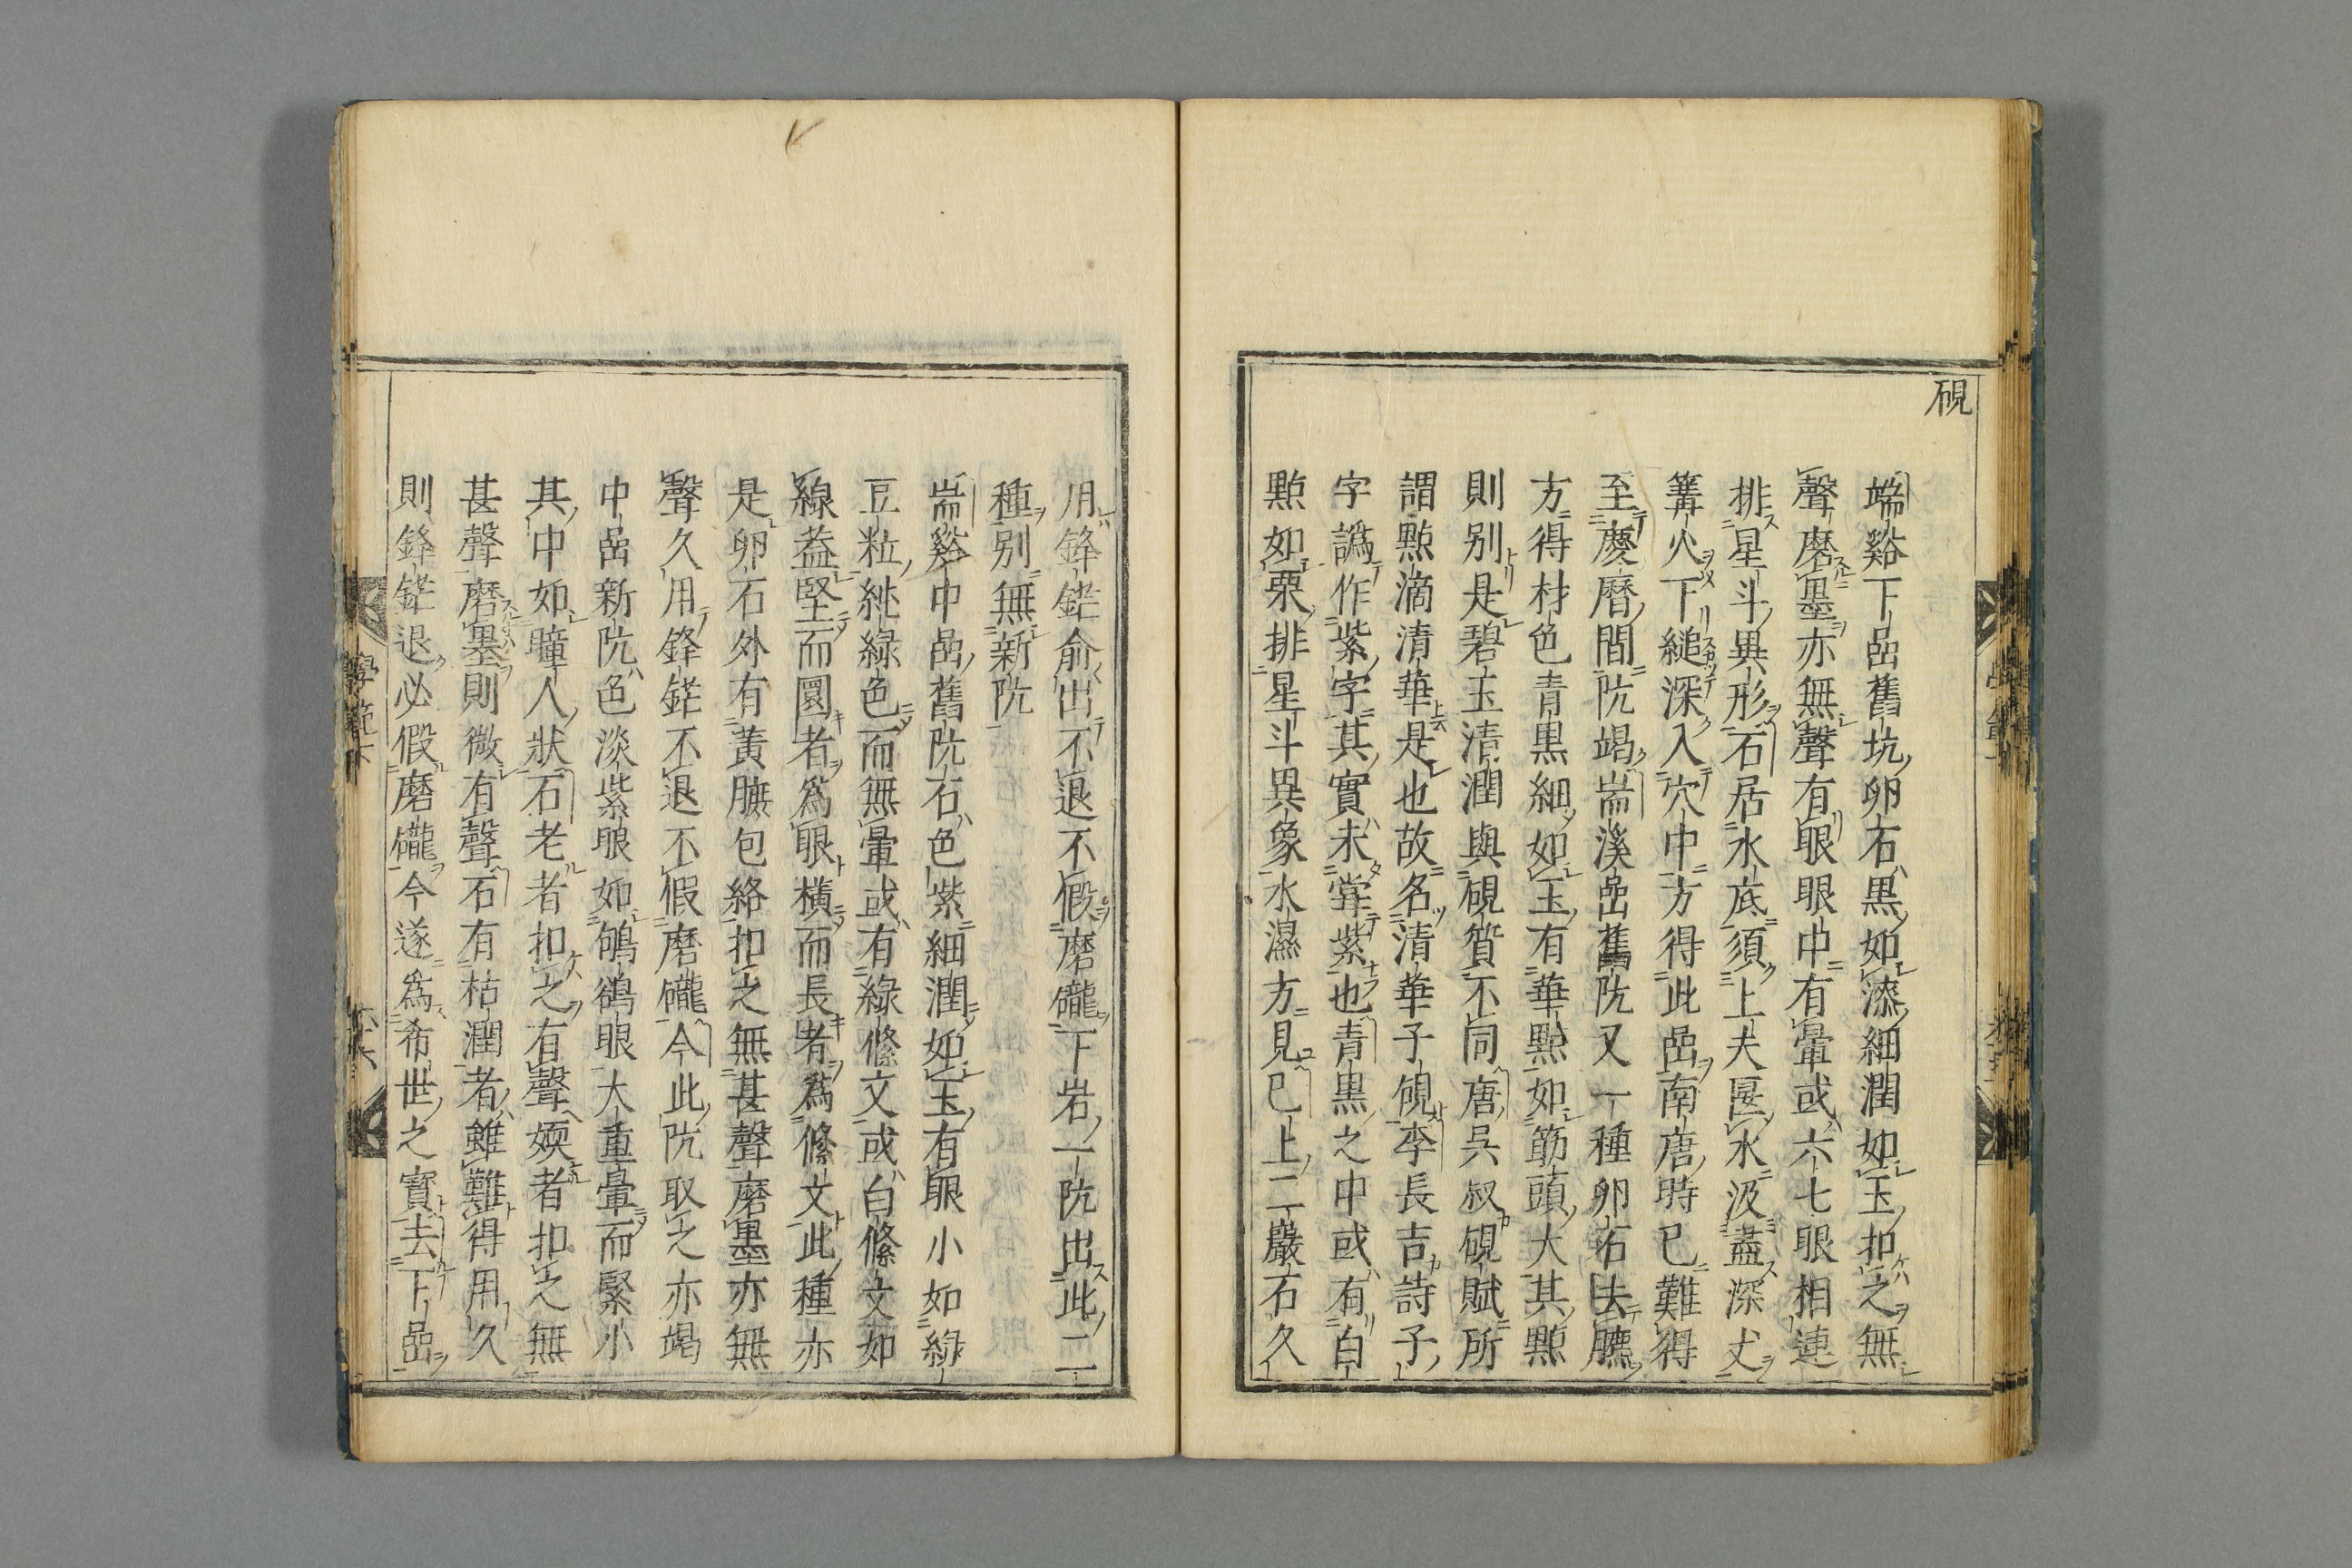 硯
端谿下嵒舊坑卵石黒如漆細潤如玉扣之無
聲磨墨亦無聲有眼眼中有暈或六七眼相連
排星斗異形石居水底須上夫匽水汲盡深丈
篝火下縋深入穴中方得此嵒南唐時已難得
至慶曆間阬竭耑溪嵒舊阬又一種卵石去臕
方得材色青黒細如玉有華點如筯頭大其點
則别是碧玉清潤與硯質不同唐吳叔硯賦所
謂點滴清華是也故名清華子硯李長吉詩子
字譌作紫字其實未甞紫也青黒之中或有白
點如粟排星斗異象水濕方見已上二巖石久
用鋒鋩俞出不退不假磨礲下岩一阬出此二
種别無新阬
耑谿中嵒舊阬石色紫細潤如玉有眼小如綠
豆粒純綠色而無暈或有綠絛文或白絛文如
線葢堅而圜者爲眼橫而長者爲絛文此種亦
是卵石外有黃臕包絡扣之無甚聲磨墨亦無
聲久用鋒鋩不退不假磨礲今此阬取之亦竭
中嵒新阬色淡紫眼如鴝鵒眼大重暈而緊小
其中如瞳人狀石老者扣之有聲媆者扣之無
甚聲磨墨則微有聲石有枯潤者雖難得用久
則鋒鋩退必假磨礲今遂爲希世之寳去下嵒